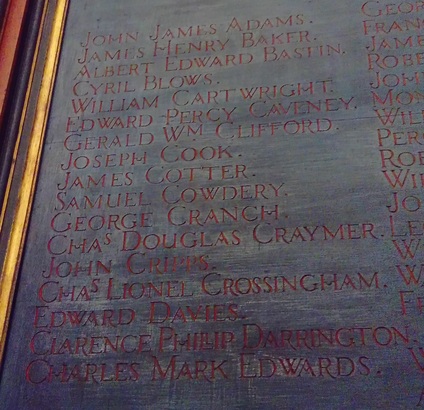 JOHN JAMES ADAMS.
JAMES HENRY BAKER.
ALBERT EDWARD BASTIN.
CYRIL BLOWS.
WILLIAM CARTWRIGHT.
EDWARD PERCY CAVENEY.
GERALD WM CLIFFORD.
JOSEPH COOK.
JAMES COTTER.
SAMUEL COWDERY.
GEORGE CRANCH.
CHAS DOUGLAS CRAYMER.
JOHN CRIPPS.
CHAS LIONEL CROSSINGHAM.
EDWARD DAVIES.
CLARENCE PHILIP DARRINGTON.
CHARLES MARK EDWARDS.
GEOR
FRAN
JAME
ROBE
JOH
MON
WIL
PER
ROB
WI
JO
LE
W
W
FR